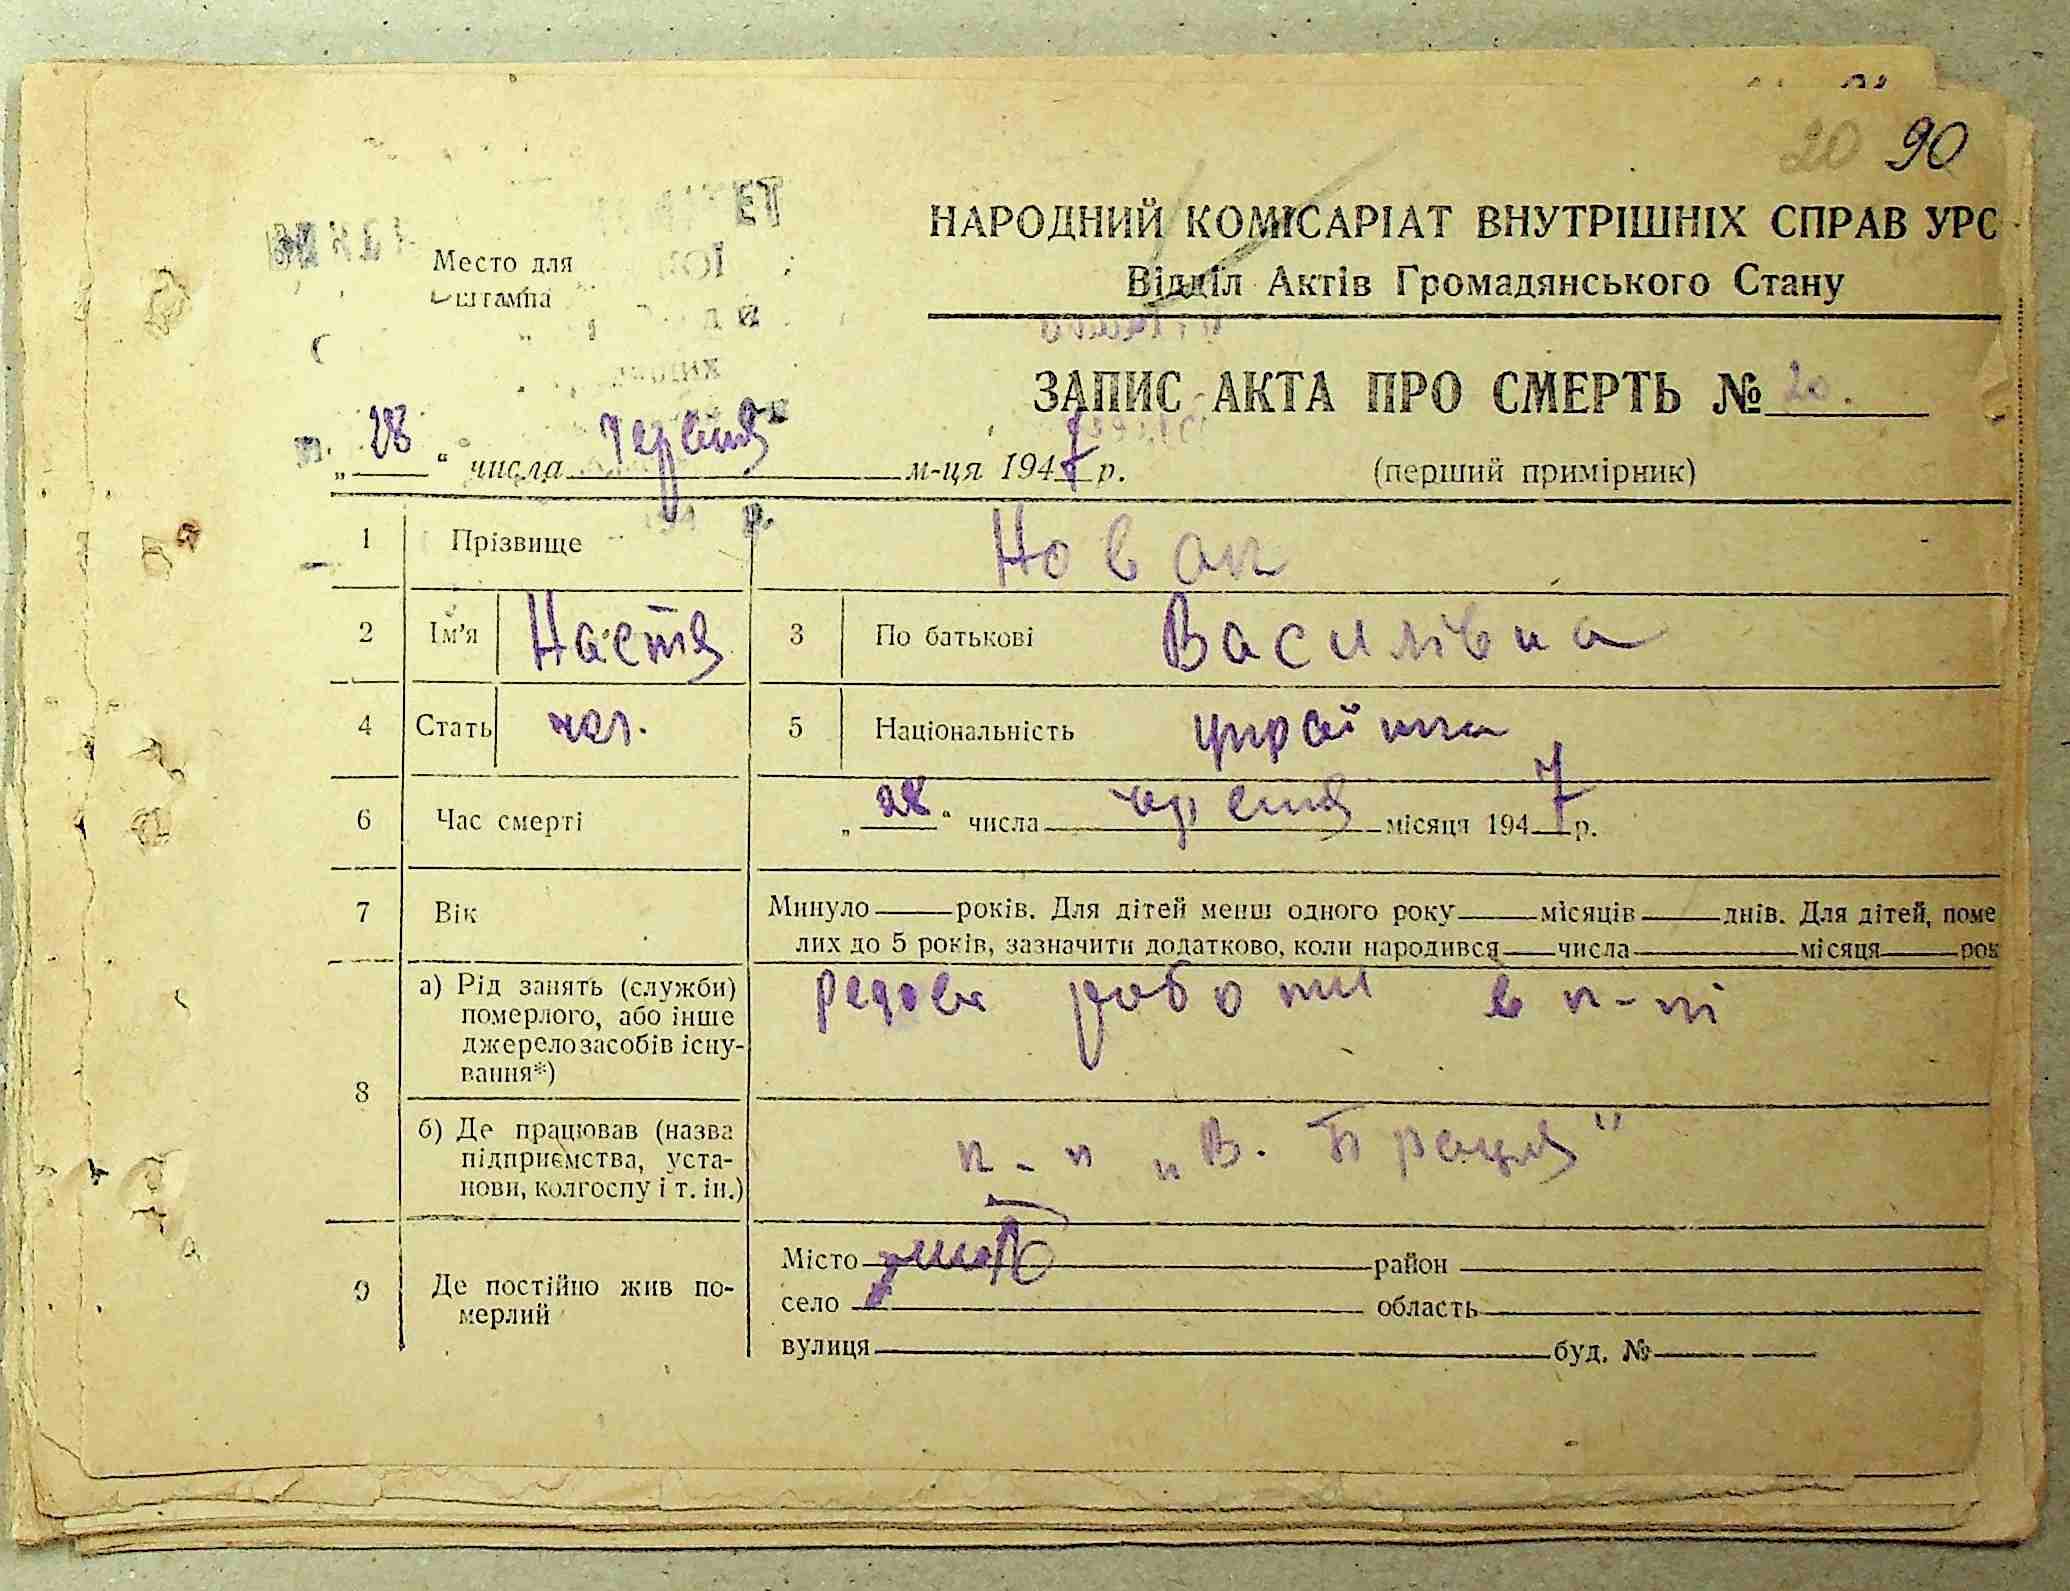 20 90
НАРОДНИЙ КОМІСАРІАТ ВНУТРІШНІХ СПРАВ УРС
Место для штампа
Відділ Актів Громадянського Стану
ЗАПИС АКТА ПРО СМЕРТЬ № 20.
„28“ числа червня м-ця 1947 р. (перший примірник)
1 Прізвище Новак
2 Ім'я Настя 3 По батькові Василівна
4 Стать 5 Національність українка
6 Час смерті „28“ числа червня місяця 1947 р.
7 Вік Минуло років. Для дітей менш одного року місяців днів. Для дітей, поме
лих до 5 років, зазначити додатково, коли народився числа місяця рок
8 а) Рід занять (служби) померлого, або інше джерело засобів існування*) редові роботи в к-пі
б) Де працював (назва підприємства, установи, колгоспу і т. ін.) к-п „В. Праця"
9 Де постійно жив померлий Місто район
село область
вулиця буд. №